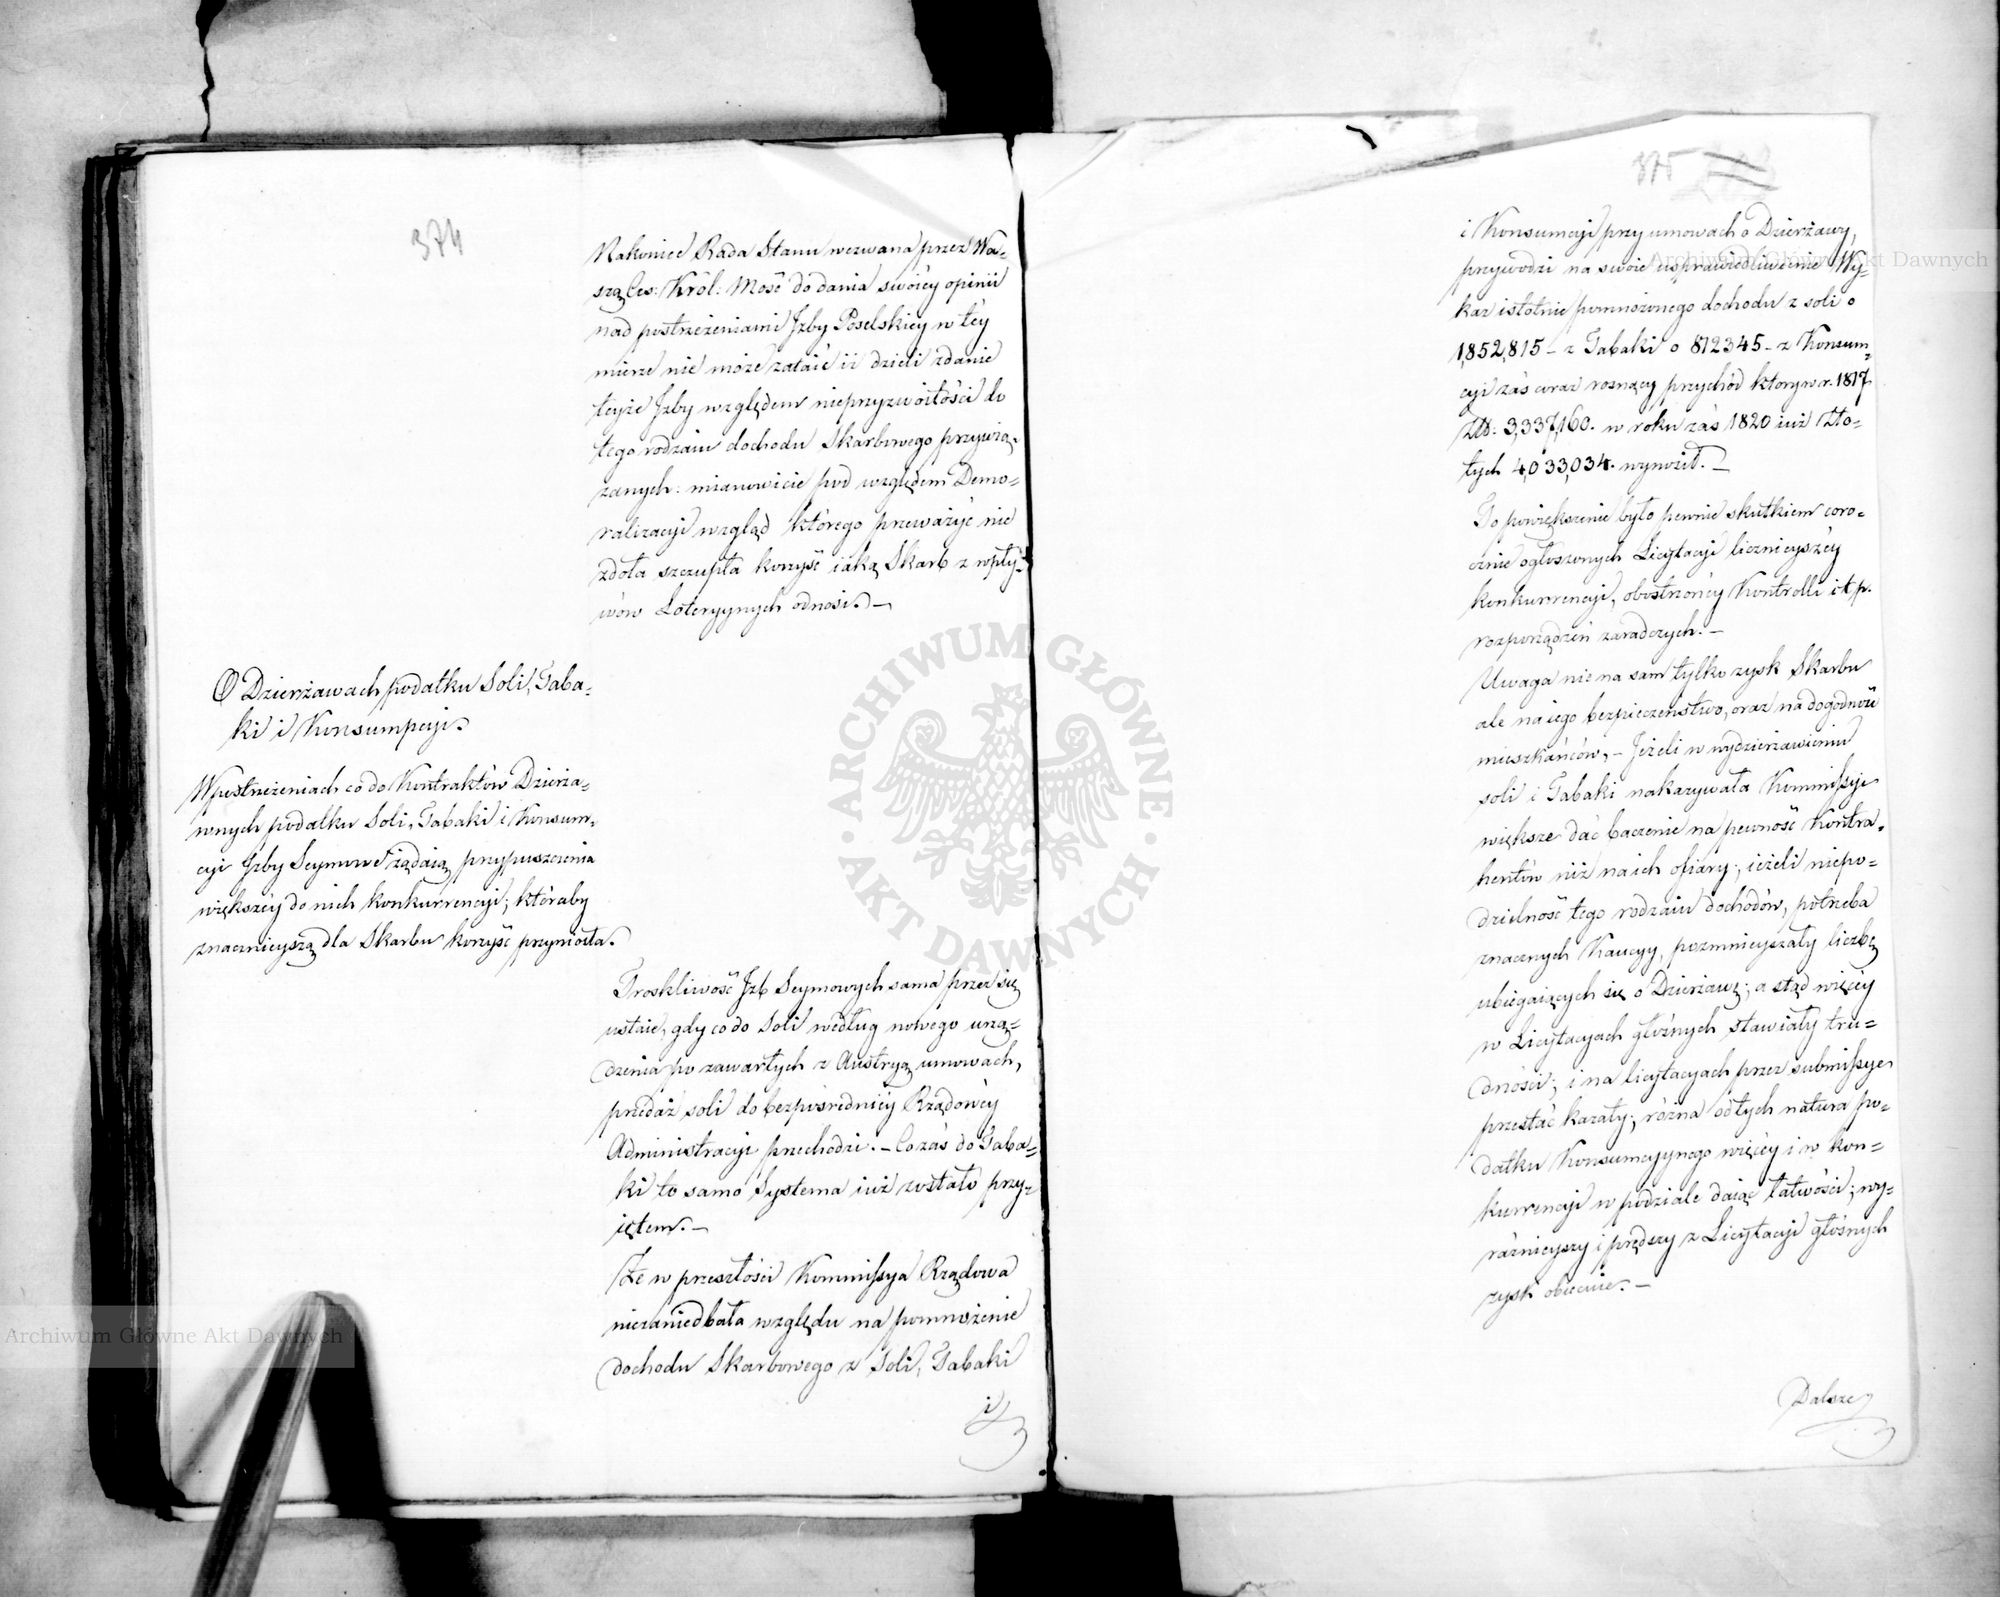 374
Nakoniec Rada Stanu wezwana przez Wa-
szą Ces: Król: Mość do dania swoiey opinii
nad postrzeżeniami Izby Poselskiey w tey
mierze nie może zataić iż dzieli zdanie
teyże Izby względem nieprzyzwoitości do
tego rodzaiu dochodu Skarbowego przywią-
zanych: mianowicie pod względem Demo-
ralizacyi wzgląd którego przeważyć nie
zdoła szczupła korzyść iaką Skarb z wpły-
wów Loteryynych odnosi. —
O Dzierżawach podatku Soli, Taba-
ki i Konsumpcyi.
W postrzeżeniach co do Kontraktów Dzierża-
wnych podatku Soli, Tabaki i Konsum-
cyi Izby Seymowe żądaią przypuszczenia
większéy do nich konkurrencyi; któraby
znacznieyszą dla Skarbu korzyść przyniosła.
Troskliwość Izb Seymowych sama przez się
ustaie, gdy co do Soli według nowego urzą-
dzenia po zawartych z Austryą umowach,
przedaż soli do bezpośredniéy Rządowéy
Administracyi przechodzi. — Co zaś do Taba-
ki to samo Systema iuż zostało przy-
iętem. —
Że w przeszłości Kommissya Rządowa
niezaniedbała względu na pomnożenie
dochodu Skarbowego z Soli, Tabaki
i
375
i Konsumcyi przy umowach o Dzierżawy,
przywodzi na swoie usprawiedliwienie Wy-
kaz istotnie pomnożonego dochodu z soli o
1,852,815 – z Tabaki o 812345 – z Konsum-
cyi zaś coraz rosnący przychód który w r. 1817
Złł. 3,337,160. w roku zaś 1820 iuż Zło-
tych 4,033,034. wynosił. —
To powiększenie było pewnie skutkiem coro-
cznie ogłoszonych Licytacyi licznieyszéy
konkurrencyi, obostrzonéy Kontrolli i t. p.
rozporządzeń zaradczych. —
Uwaga nie na sam tylko zysk Skarbu
ale na iego bezpieczeństwo, oraz na dogodność
mieszkańców, – Jeżeli w wydzierżawieniu
soli i Tabaki nakazywała Kommissyi
większe dać baczenie na pewność Kontra-
hentów niż na ich ofiary; ieżeli niepo-
dzielność tego rodzaiu dochodów, potrzeba
znacznych Kaucyy, pozmnieyszały liczbę
ubiegaiących się o Dzierżawę; a stąd więcéy
w Licytacyach głośnych stawiały tru-
dności; i na licytacyach przez submissye
przestać kazały; różna od tych natura po-
datku Konsumcyynego więcéy i w kon-
kurrencyi w podziale daiąc łatwości; wy-
raźnieyszy i prędszy z Licytacyi głośnych
zysk obiecuie. —
Dalsze
Archiwum Główne Akt Dawnych
Archiwum Główne Akt Dawnych
ARCHIWUM GŁÓWNE
AKT DAWNYCH